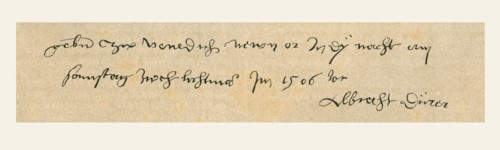 geben czw Venedich newn or Jn dy nacht am
samstag noch lichtmes Jm 1506 Jor
Albrecht Dürer